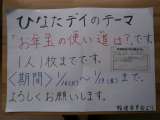 ひなたデイのテーマ
「お年玉の使い道は?」です。
1人1枚までです。
〈期間〉1/8(火)〜1/19(土)まで。
よろしくお願いします。